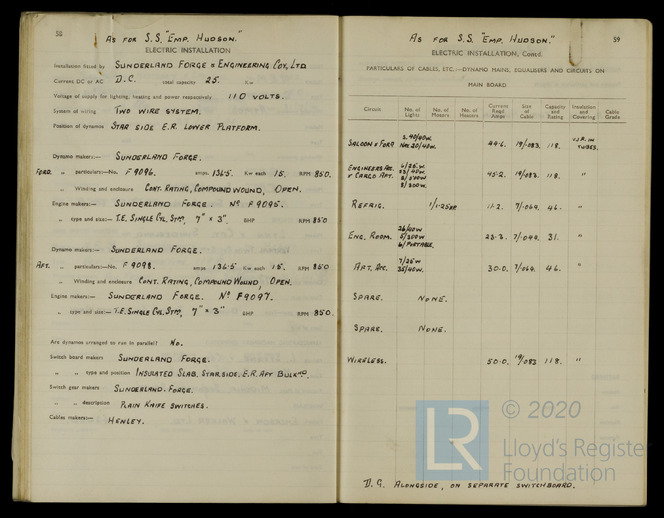 58
AS FOR S.S. "EMP. HUDSON."
ELECTRIC INSTALLATION
Installation fitted by SUNDERLAND FORGE & ENGINEERING COY, LTD
Current DC or AC D.C. total capacity 25. Kw
Voltage of supply for lighting, heating and power respectively 110 VOLTS.
System of wiring TWO WIRE SYSTEM.
Position of dynamos STAR SIDE E.R. LOWER PLATFORM.
Dynamo makers:— SUNDERLAND FORGE.
FORD. „ particulars:—No. F 9096. amps. 136.5. Kw each 15. RPM 850.
„ Winding and enclosure CONT. RATING, COMPOUND WOUND, OPEN.
Engine makers:— SUNDERLAND FORGE. Nº F 9095.
„ type and size:— T.E. SINGLE CYL. STM, 7" × 3". BHP RPM 850
Dynamo makers:— SUNDERLAND FORGE.
AFT. „ particulars:—No. F 9098. amps 136.5 Kw each 15. RPM 850
„ Winding and enclosure CONT. RATING, COMPOUND WOUND, OPEN.
Engine makers:— SUNDERLAND FORGE. Nº F 9097.
„ type and size:— T.E. SINGLE CYL. STM, 7" × 3" BHP RPM 850.
Are dynamos arranged to run in parallel? NO.
Switch board makers SUNDERLAND FORGE.
„ „ type and position INSULATED SLAB, STAR. SIDE. E.R. AFT BULKHD.
Switch gear makers SUNDERLAND. FORGE.
„ „ description PLAIN KNIFE SWITCHES.
Cables makers:— HENLEY.
59
AS FOR S.S. "EMP. HUDSON."
ELECTRIC INSTALLATION, Contd.
PARTICULARS OF CABLES, ETC.:—DYNAMO MAINS, EQUALISERS AND CIRCUITS ON
MAIN BOARD
Circuit No. of Lights No. of Motors No. of Heaters Current Read Amps Size of Cable Capacity and Rating Insulation and Covering Cable Grade
SALOON & FORD 40/40W. 20/40W. 49.6. 19/.083. 118. V.I.R. IN TUBES.
ENGINEERS ACC. & CARGO AFT. 8/300W. 45.2. 19/.083. 118. "
REFRIG. 11.2. 7/.064. 46. "
ENG. ROOM. 26/40W 5/200W 6/PORTABLE. 23.3. 7/.044. 31. "
AFT. ACC. 7/25W 35/40W. 30.0. 7/.064. 46. "
SPARE. NONE.
SPARE. NONE.
WIRELESS. 50.0. 19/.083 118. "
D.G. ALONGSIDE, ON SEPARATE SWITCHBOARD.
LR © 2020
Lloyd's Register
Foundation